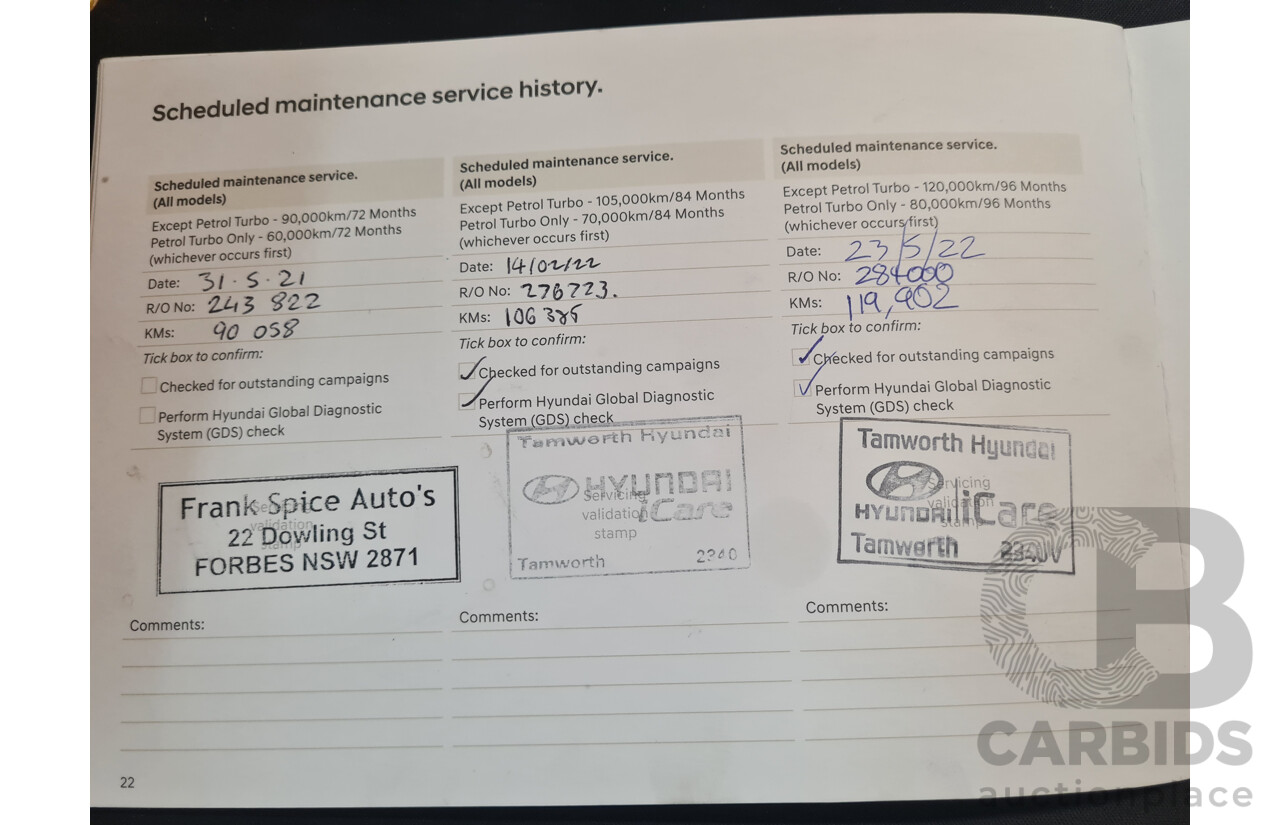 Scheduled maintenance service history.
Scheduled maintenance service.
(All models)
Except Petrol Turbo - 90,000km/72 Months
Petrol Turbo Only - 60,000km/72 Months
(whichever occurs first)
Date: 31·5·21
R/O No: 243 822
KMs: 90 058
Tick box to confirm:
Checked for outstanding campaigns
Perform Hyundai Global Diagnostic
System (GDS) check
Servicing
validation
stamp
Frank Spice Auto's
22 Dowling St
FORBES NSW 2871
Comments:
Scheduled maintenance service.
(All models)
Except Petrol Turbo - 105,000km/84 Months
Petrol Turbo Only - 70,000km/84 Months
(whichever occurs first)
Date: 14/02/22
R/O No: 276723.
KMs: 106 385
Tick box to confirm:
Checked for outstanding campaigns
Perform Hyundai Global Diagnostic
System (GDS) check
Tamworth Hyundai
HYUNDAI
iCare
Servicing
validation
stamp
Tamworth 2340
Comments:
Scheduled maintenance service.
(All models)
Except Petrol Turbo - 120,000km/96 Months
Petrol Turbo Only - 80,000km/96 Months
(whichever occurs first)
Date: 23/5/22
R/O No: 284000
KMs: 119,902
Tick box to confirm:
Checked for outstanding campaigns
Perform Hyundai Global Diagnostic
System (GDS) check
Tamworth Hyundai
Servicing
validation
stamp
HYUNDAI iCare
Tamworth
Comments:
22
CB
CARBIDS
auctionplace